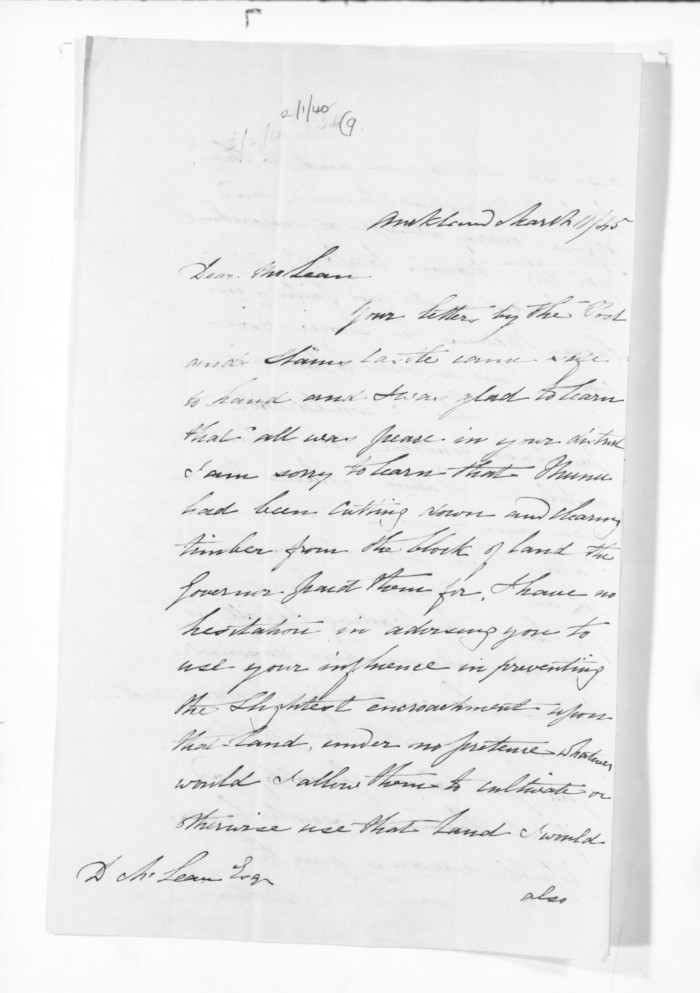 2/1/40
Auckland March 11/45
Dear McLean
Your letters by the Post
and Slains Castle came safe
to hand and I was glad to learn
that all was peace in your district
I am sorry to learn that
had been cutting down and clearing
timber from the block of land the
Governor paid them for. I have no
hesitation in advising you to
use your influence in preventing
the slightest encroachment upon
that land, under no pretence whatever
would I allow them to cultivate or
otherwise use that land I would
D McLean Esqr
also